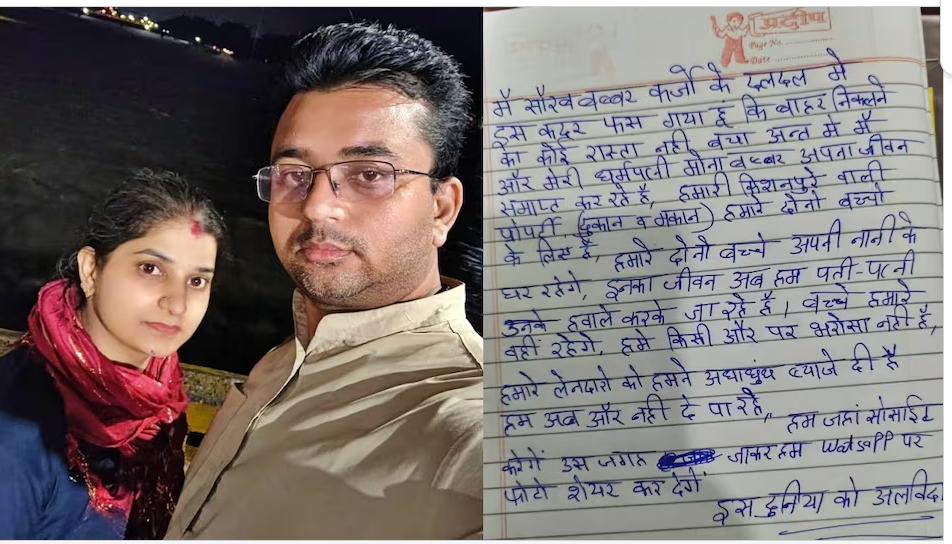 प्रदीप
Page No.
Date
मै सौरव बब्बर कर्जो के दलदल मे
इस कदर फस गया हूं कि बाहर निकलने
का कोई रास्ता नही बचा अन्त मे मैं
और मेरी धर्मपत्नी मोना बब्बर अपना जीवन
समाप्त कर रहे है, हमारी किशनपुरे वाली
प्रोपर्टी (दुकान व मकान) हमारे दोनो बच्चो
के लिए है, हमारे दोनो बच्चे अपनी नानी के
घर रहेगे, इनका जीवन अब हम पती-पत्नी
उनके हवाले करके जा रहे है। बच्चे हमारे
वहीं रहेगे, हमे किसी और पर भरोसा नही है,
हमारे लेनदारो को हमने अंधाधुंध ब्याजे दी है
हम अब और नही दे पा रहे,, हम जहां सोसाईट
करेगें उस जगह जाकर हम WatsaPP पर
फोटो शेयर कर देगें
इस दुनिया को अलविद